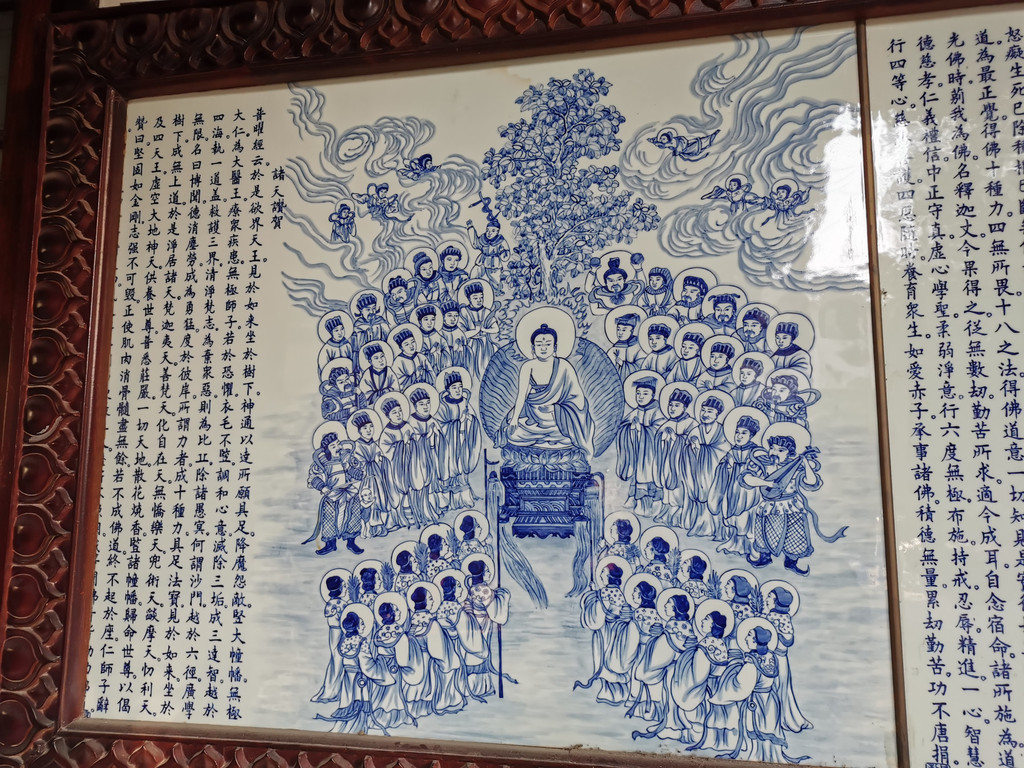 怒癡生死已除種
道為最正覺。得佛十種力。四無所畏。十八之法。得佛道意。一切知
光佛時莂我為佛。名釋迦文。今果得之。從無數劫勤苦所求。適今成耳。自念宿命。諸所施為道
德慈孝仁義禮信。中正守真。虛心學聖。柔弱淨意。行六度無極。布施。持戒。忍辱。精進。一心。智慧
行四等心慈 養育衆生。如愛赤子。承事諸佛。積德無量。累劫勤苦。功不唐捐。
諸天讚賀
普曜經云。於是欲界天王。見於如來坐於樹下。神通以達。所願具足。降魔怨敵。豎大幢幡。無極
大仁。為大醫王。療衆疾患。無極師子。若於恐懼。衣毛不豎。調和心意。滅除三垢。成三達智。越於
四海。執一道蓋。救護三界。清淨梵志。為棄衆惡。則為比丘。除諸愚冥。何謂沙門。越於六徑。廣學
無限。名曰博聞。德消塵勞。成為勇猛。度於彼岸。所謂力者。成十種力。具足法寶。見於如來。坐於
樹下。成無上道。於是淨居諸天。梵迦夷天。善梵天。化自在天。無憍樂天。兜術天。燄摩天。忉利天。
及四天王。虛空大地神天。供養世尊。普悉莊嚴一切天地。散花燒香。豎諸幢幡。歸命世尊。以偈
讚曰。堅固如金剛。志强不可毀。正使肌肉消。骨髓盡無餘。若不成佛道。終不起於座。仁師子辭